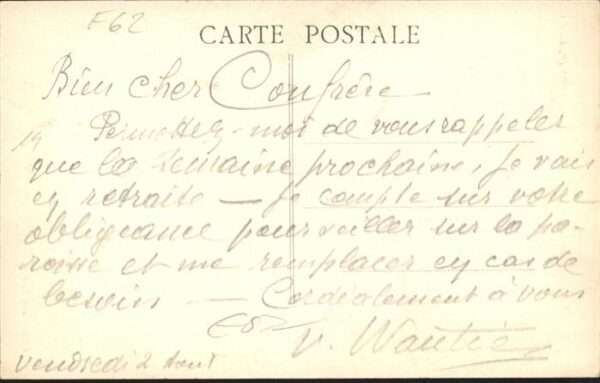 E62
CARTE POSTALE
Bien cher Confrère
Permettez-moi de vous rappeler
que la semaine prochaine, je vais
en retraite — Je compte sur votre
obligeance pour veiller sur la pa-
roisse et me remplacer en cas de
besoin — Cordialement à vous
V. Wautié
Vendredi 2 Aout